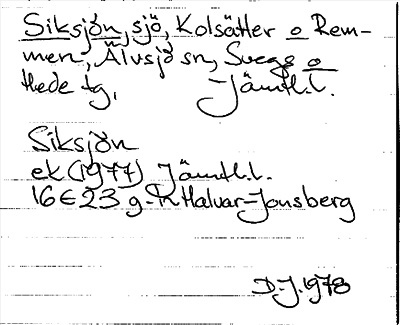 Siksjön, sjö, Kolsätter o Rem-
men, Älvsjö sn, Svegs o
Hede tg, Jämtl.l.
Siksjön
ek (1977) Jämtl.l.
16E23 g-h Halvar-Jonsberg
D.J. 1978